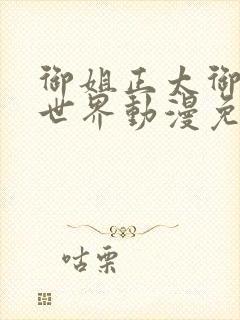 御姐正太御
世界動漫免
咕栗